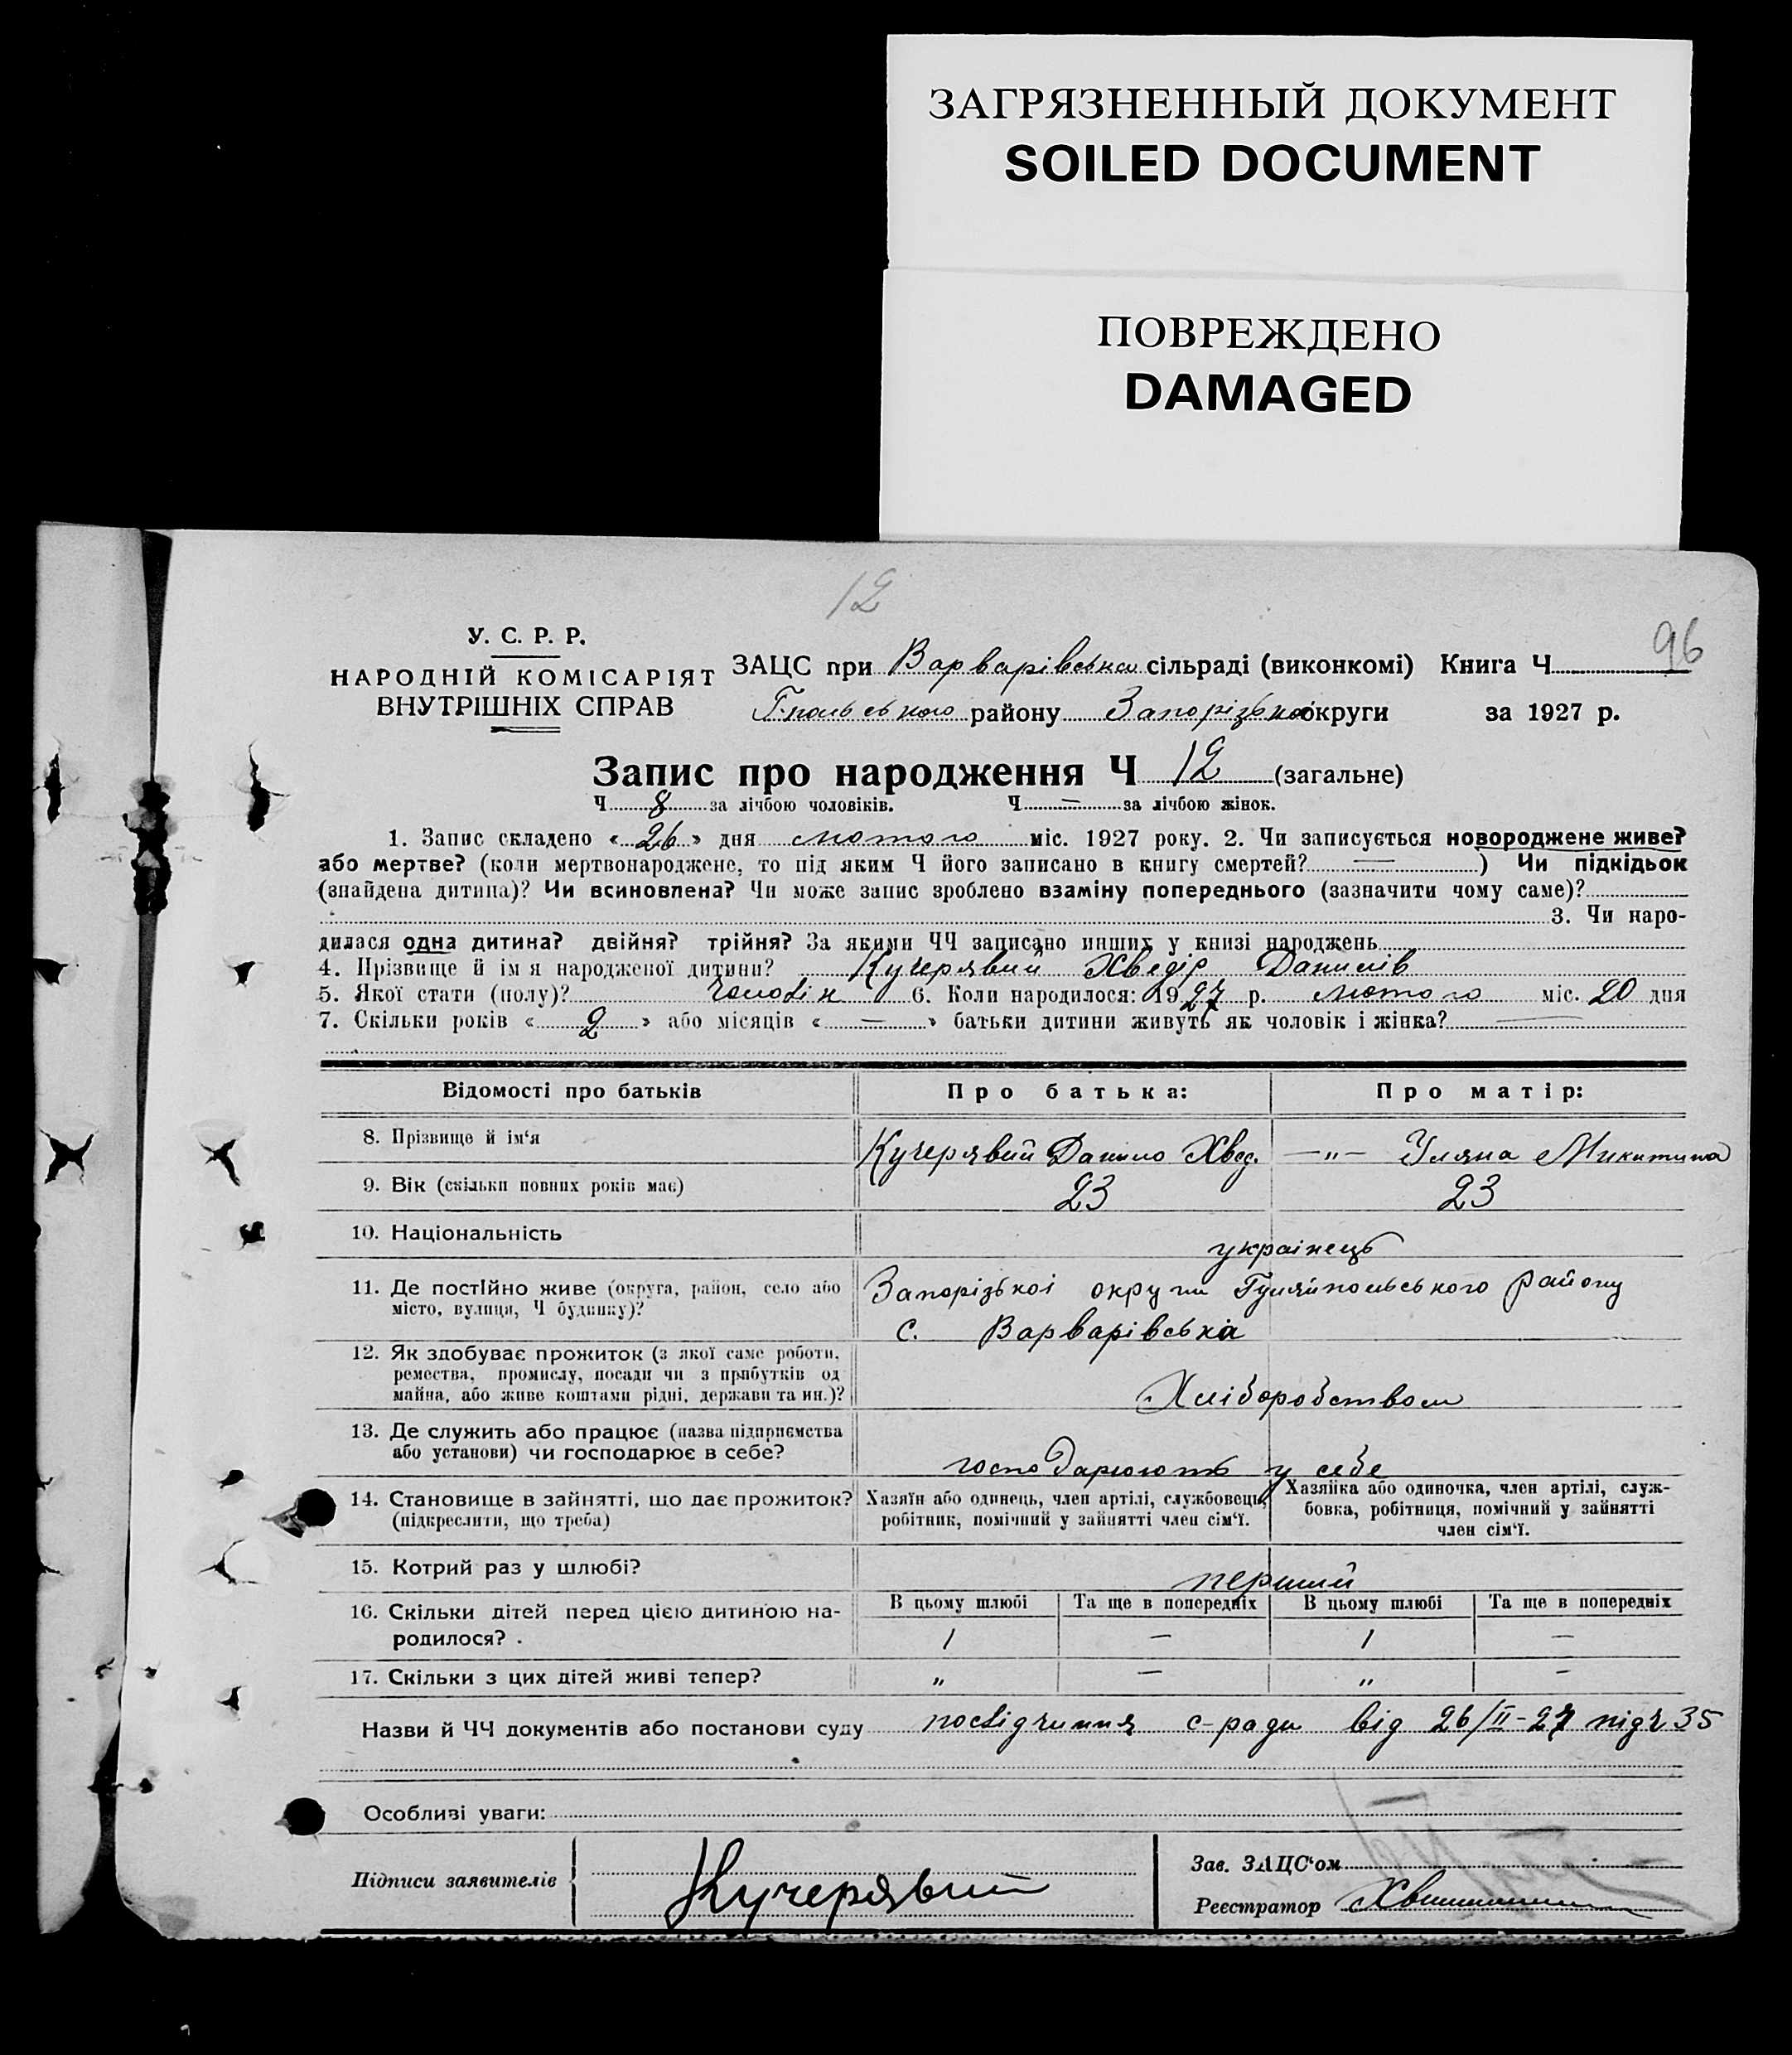 ЗАГРЯЗНЕННЫЙ ДОКУМЕНТ
SOILED DOCUMENT
ПОВРЕЖДЕНО
DAMAGED
12
96
У. С. Р. Р.
НАРОДНІЙ КОМІСАРІЯТ
ВНУТРІШНІХ СПРАВ
ЗАЦС при Варварівська сільраді (виконкомі) Книга Ч
Г-польського району Запорізької округи за 1927 р.
Запис про народження Ч 12 (загальне)
Ч 8 за лічбою чоловіків. Ч — за лічбою жінок.
1. Запис складено « 26 » дня лютого міс. 1927 року. 2. Чи записується новороджене живе?
або мертве? (коли мертвонароджене, то під яким Ч його записано в книгу смертей? — ) Чи підкідьок
(знайдена дитина)? Чи всиновлена? Чи може запис зроблено взаміну попереднього (зазначити чому саме)?
3. Чи наро-
дилася одна дитина? двійня? трійня? За якими ЧЧ записано инших у книзі народжень
4. Прізвище й ім я народженої дитини? Кучерявий Хведір Данилів
5. Якої стати (полу)? Чоловік 6. Коли народилося: 1927 р. лютого міс. 20 дня
7. Скільки років « 2 » або місяців « — » батьки дитини живуть як чоловік і жінка? —
Відомості про батьків Про батька: Про матір:
8. Прізвище й ім‘я Кучерявий Данило Хвед. —"— Уляна Микитина
9. Вік (скільки повних років має) 23 23
10. Національність українець
11. Де постійно живе (округа, район, село або
місто, вулиця, Ч будинку)?
Запорізької округи Гуляйпольського району
с. Варварівська
12. Як здобуває прожиток (з якої саме роботи,
ремества, промислу, посади чи з прибутків од
майна, або живе коштами рідні, держави та ин.)?
Хліборобством
13. Де служить або працює (назва підприємства
або установи) чи господарює в себе?
господарюють у себе
14. Становище в зайнятті, що дає прожиток?
(підкреслити, що треба)
Хазяїн або одинець, член артілі, службовець,
робітник, помічний у зайнятті член сім‘ї.
Хазяйка або одиночка, член артілі, служ-
бовка, робітниця, помічний у зайнятті
член сім‘ї.
15. Котрий раз у шлюбі? перший
16. Скільки дітей перед цією дитиною на-
родилося?
В цьому шлюбі Та ще в попередніх В цьому шлюбі Та ще в попередніх
1 — 1 —
17. Скільки з цих дітей живі тепер? " — " —
Назви й ЧЧ документів або постанови суду посвідчиння с-ради від 26/II-27 під ч 35
Особливі уваги:
Підписи заявителів Кучерявий
Зав. ЗАЦС‘ом
Реєстратор